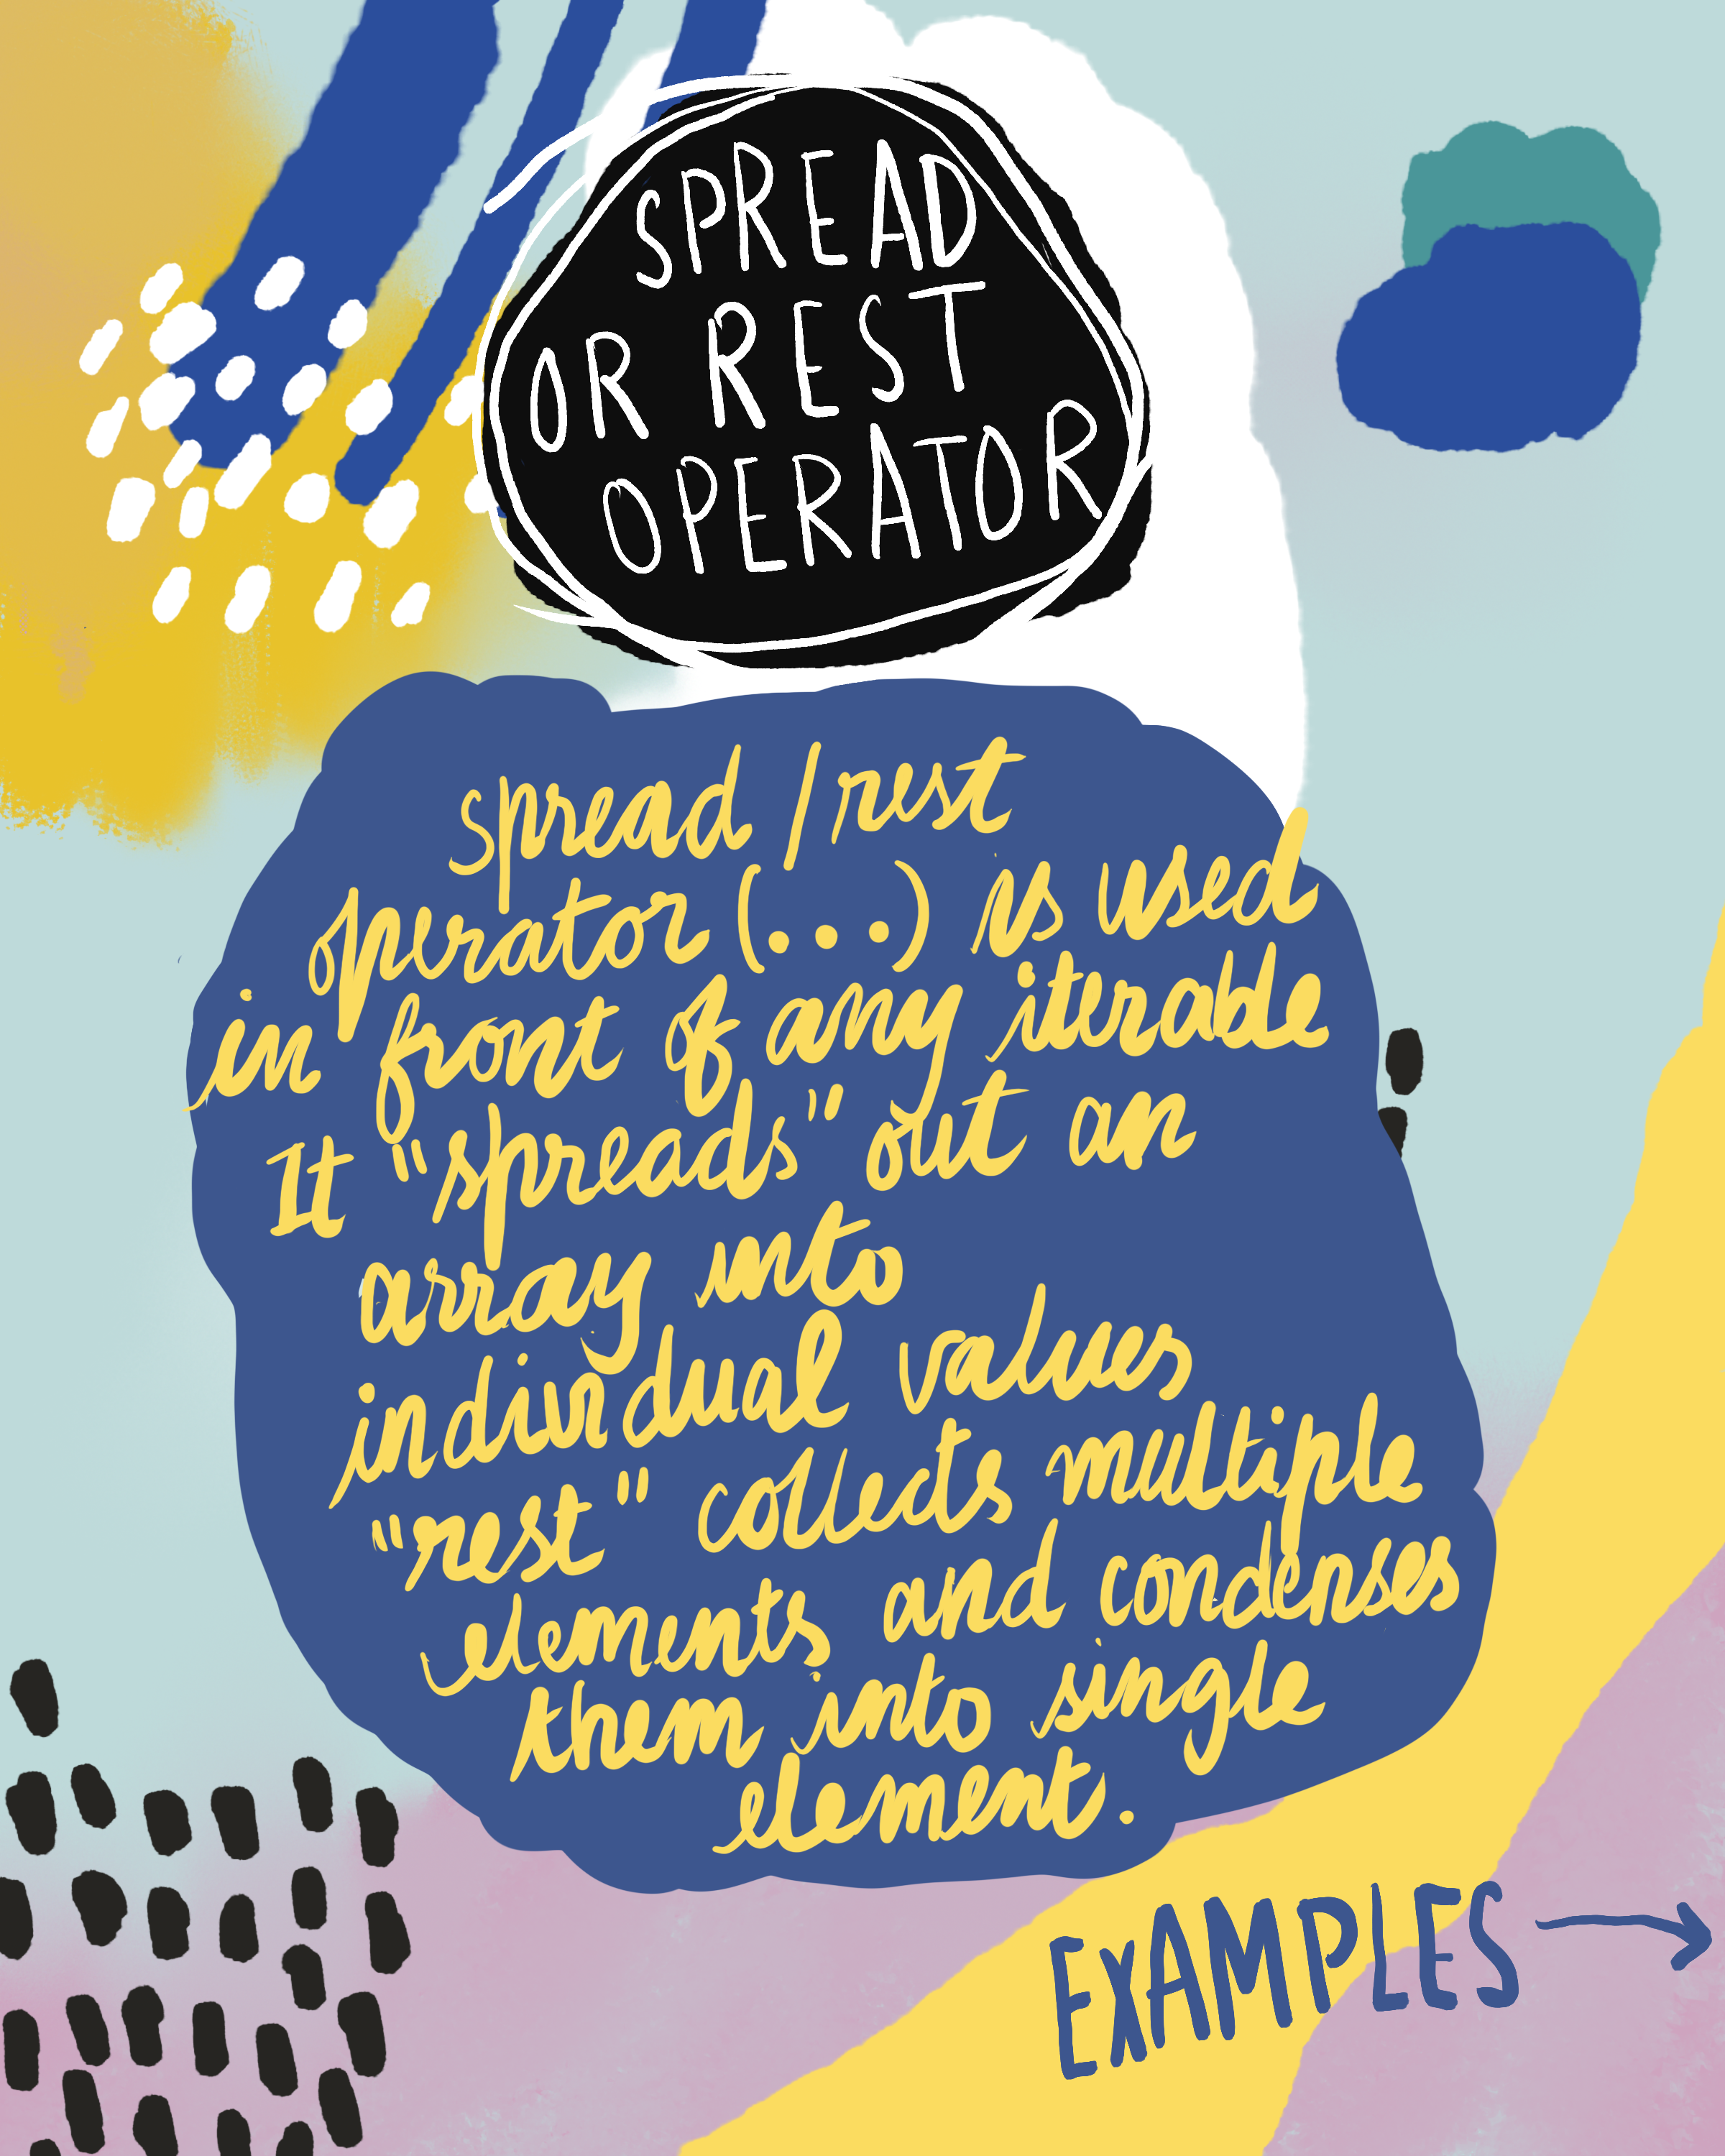 SPREAD
OR REST
OPERATOR
spread / rest
operator (...) is used
in front of any iterable
It "spreads" out an
array into
individual values
"rest" collects multiple
elements and condenses
them into single
element.
EXAMPLES →